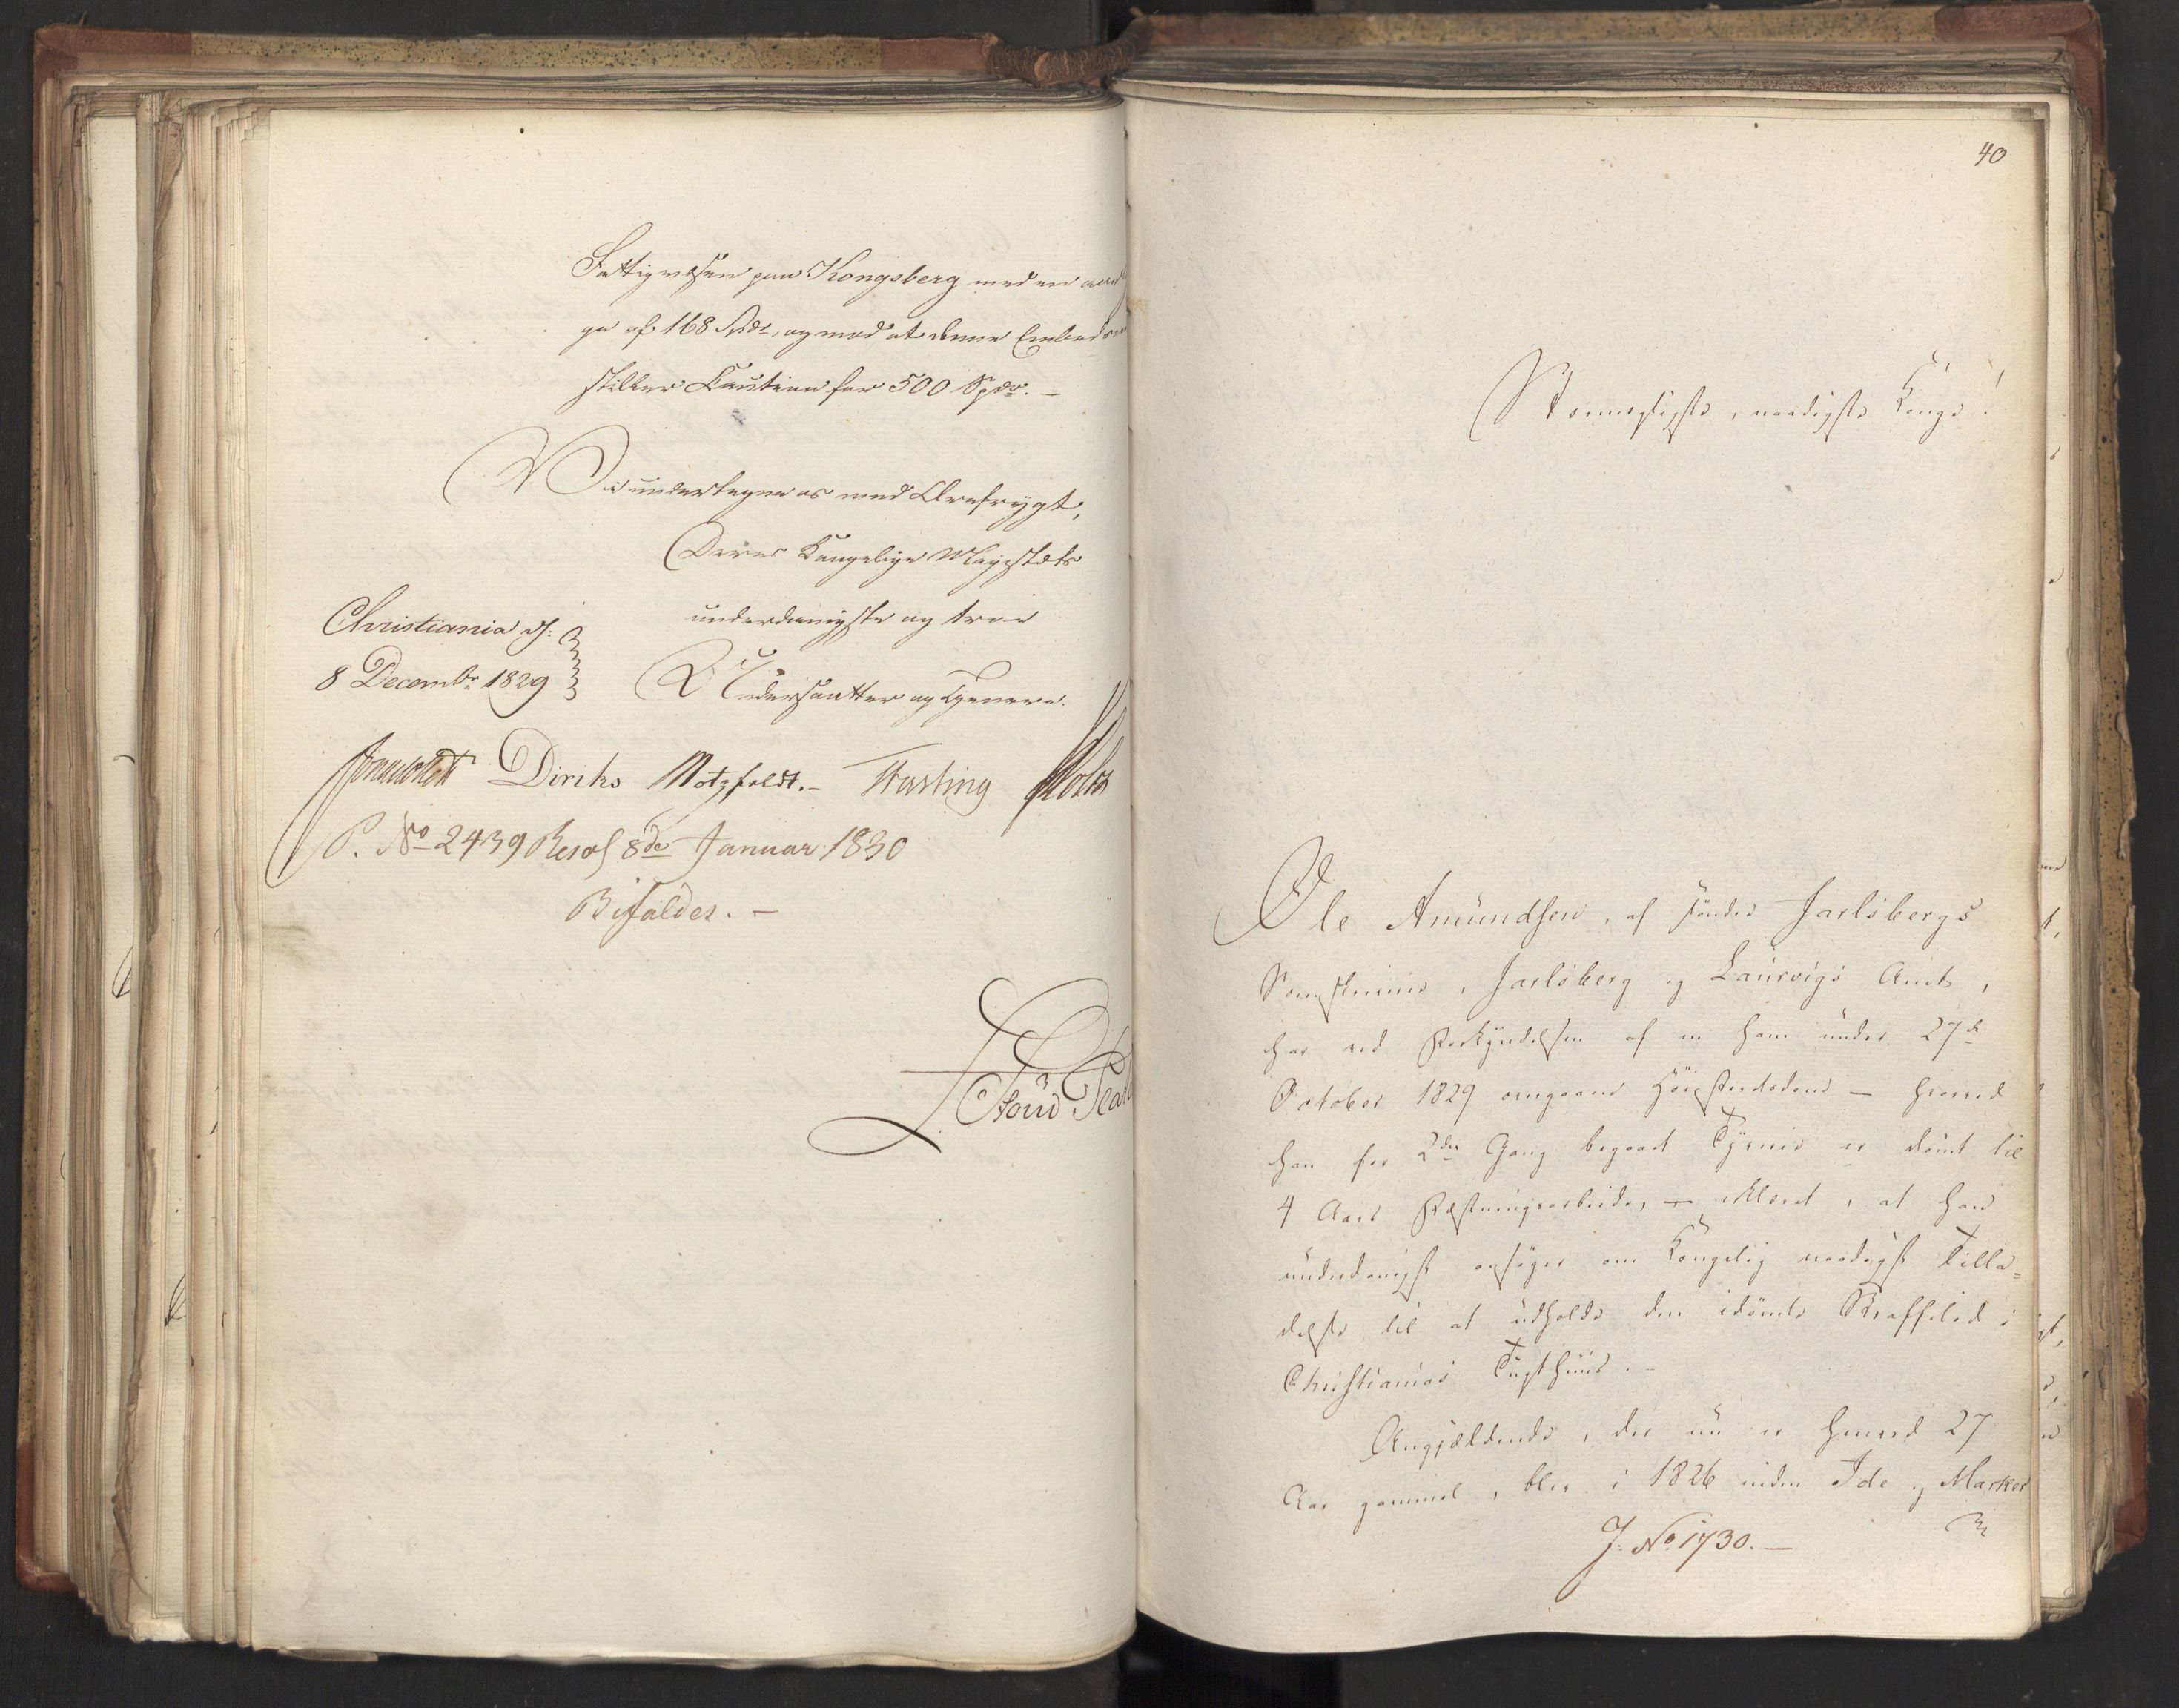 Fattigvæsen paa Kongsberg med en aarl
ge af 168 Spdr., og mod at denne Embedsm
stiller Caution for 500 Spdr. –
Vi undertegne os med Ærefrygt,
Deres Kongelige Majestæts
underdanigste og troe
Undersaatter og Tjenere.
Christiania d:
8 Decembr 1829
Diriks Motzfeldt. – Fasting Holst
P. No 2439 Resol 8de Januar 1830
Bifaldes. –
40
Stormægtigste, naadigste Konge!
Ole Amundsen, af søndre Jarlsbergs
Sorenskriverie, Jarlsberg og Laurvigs Amt,
har ved Forkyndelsen af en ham under 27de
October 1829 overgaaet Høiesteretsdom – hvorved
han for 2den Gang begaaet Tyverie er dømt til
4 Aars Fæstningsarbeide, – erklæret, at han
underdanigst ansøger om Kongelig naadigst Tilla-
delse til at udholde den idømte Straffetid i
Christianias Tugthuus. –
Angjældende, der nu er henved 27
Aar gammel, blev i 1826 inden Ide og Marker
J. No. 1730. –